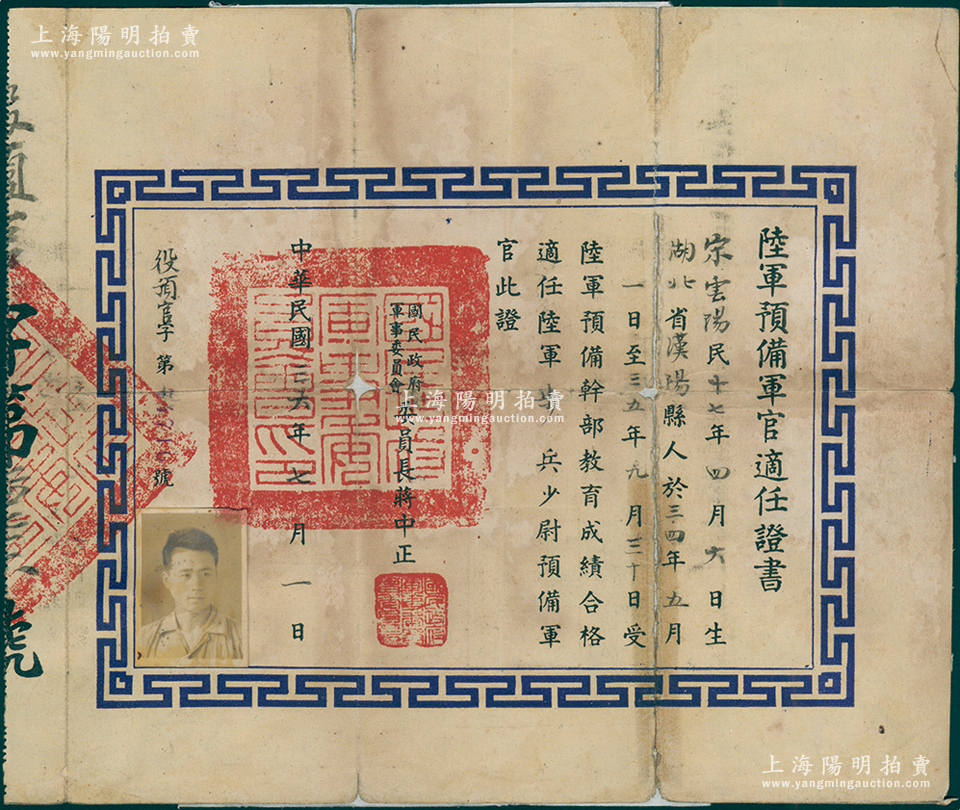 上海陽明拍賣
www.yangmingauction.com
上海陽明拍賣
www.yangmingauction.com
陸軍預備軍官適任證書
宗雲陽民十七年四月六日生
湖北省漢陽縣人於三四年五月
一日至三五年九月三十日受
陸軍預備幹部教育成績合格
適任陸軍 兵少尉預備軍
官此證
國民政府
軍事委員會
委員長蔣中正
中華民國三六年七月一日
役預官字第 號
字第 號
上海陽明拍賣
www.yangmingauction.com
上海陽明拍賣
www.yangmingauction.com